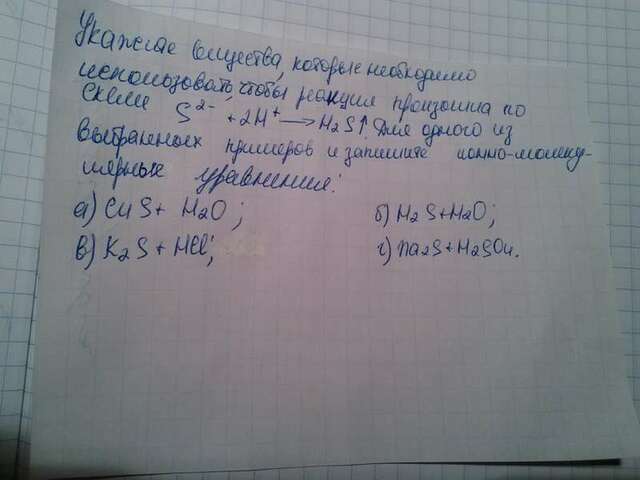 Укажите вещества, которые необходимо
использовать, чтобы реакция произошла по
схеме S²⁻ + 2H⁺ ⟶ H₂S↑. Для одного из
выбранных примеров и запишите ионно-молеку-
лярные уравнения:
а) CuS + H₂O; б) H₂S + H₂O;
в) K₂S + HCl; г) Na₂S + H₂SO₄.